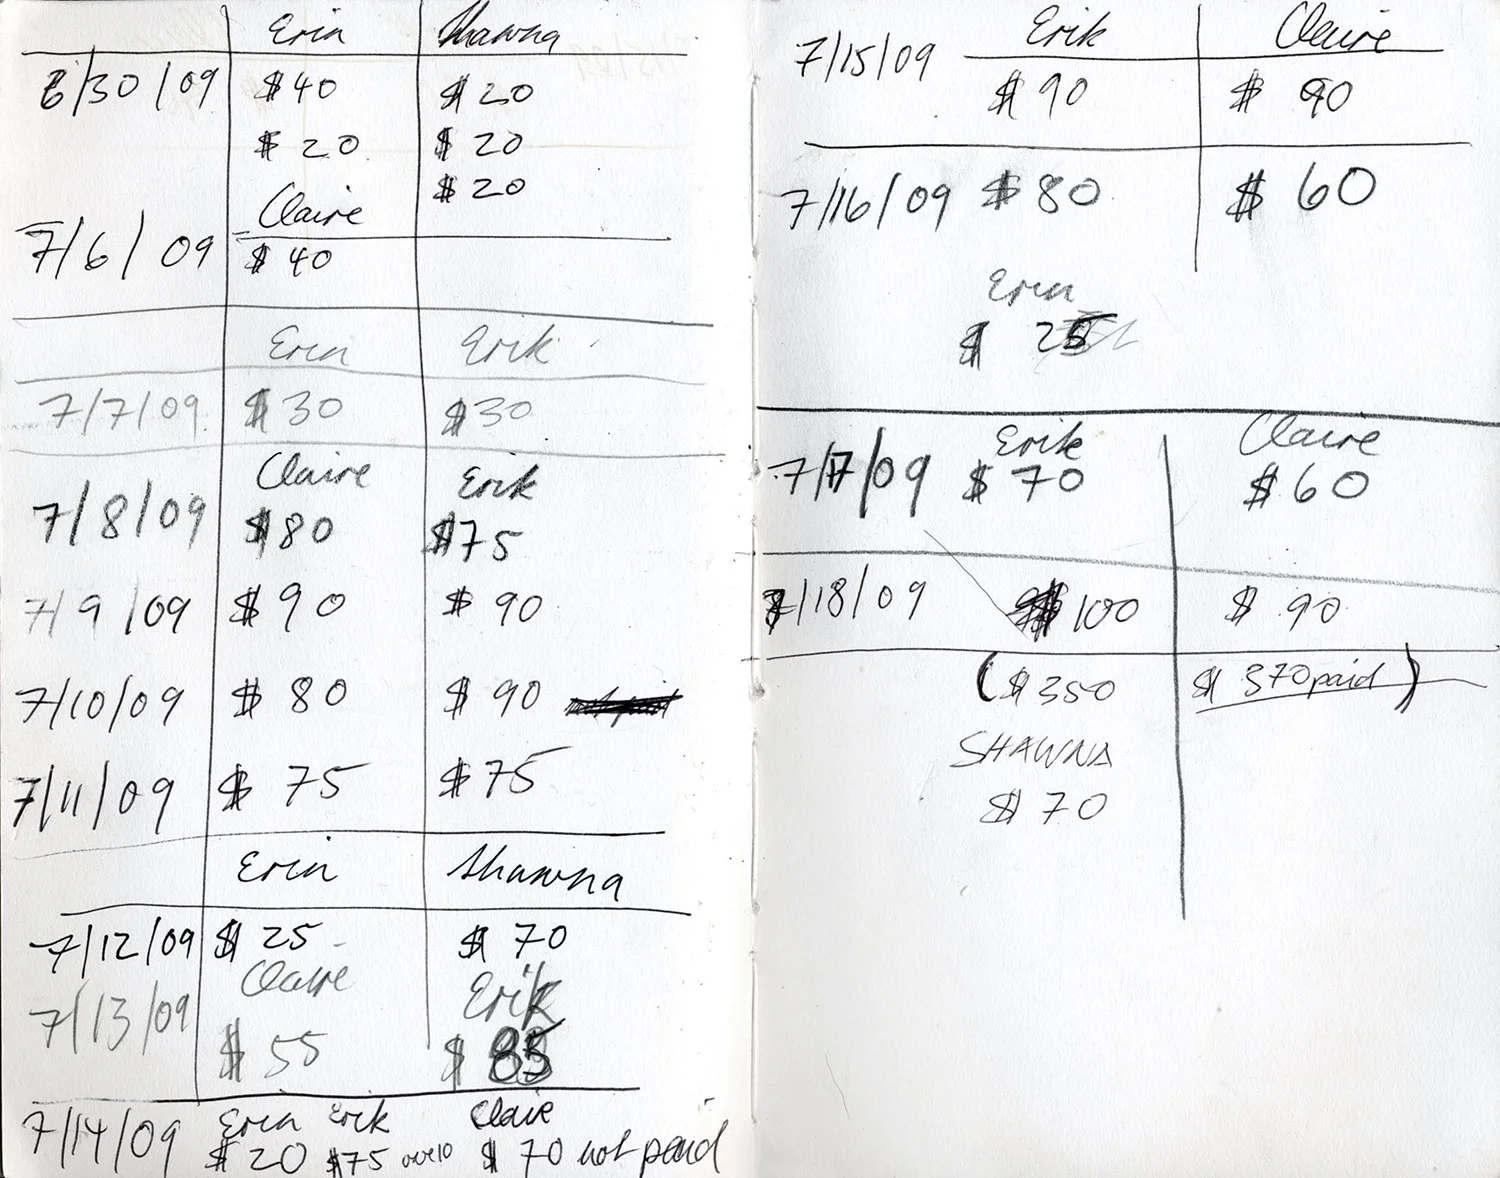 Erin Shawna
6/30/09 $40 $20
$20 $20
$20
Claire
7/6/09 $40
Erin Erik
7/7/09 $30 $30
Claire Erik
7/8/09 $80 $75
7/9/09 $90 $90
7/10/09 $80 $90
7/11/09 $75 $75
Erin Shawna
7/12/09 $25 $70
Claire Erik
7/13/09 $55 $85
7/14/09 Erin Erik Claire
$20 $75 owe10 $70 not paid
Erik Claire
7/15/09 $90 $90
7/16/09 $80 $60
Erin
$25
Erik Claire
7/17/09 $70 $60
7/18/09 $100 $90
($350 $370 paid)
SHAWNA
$70